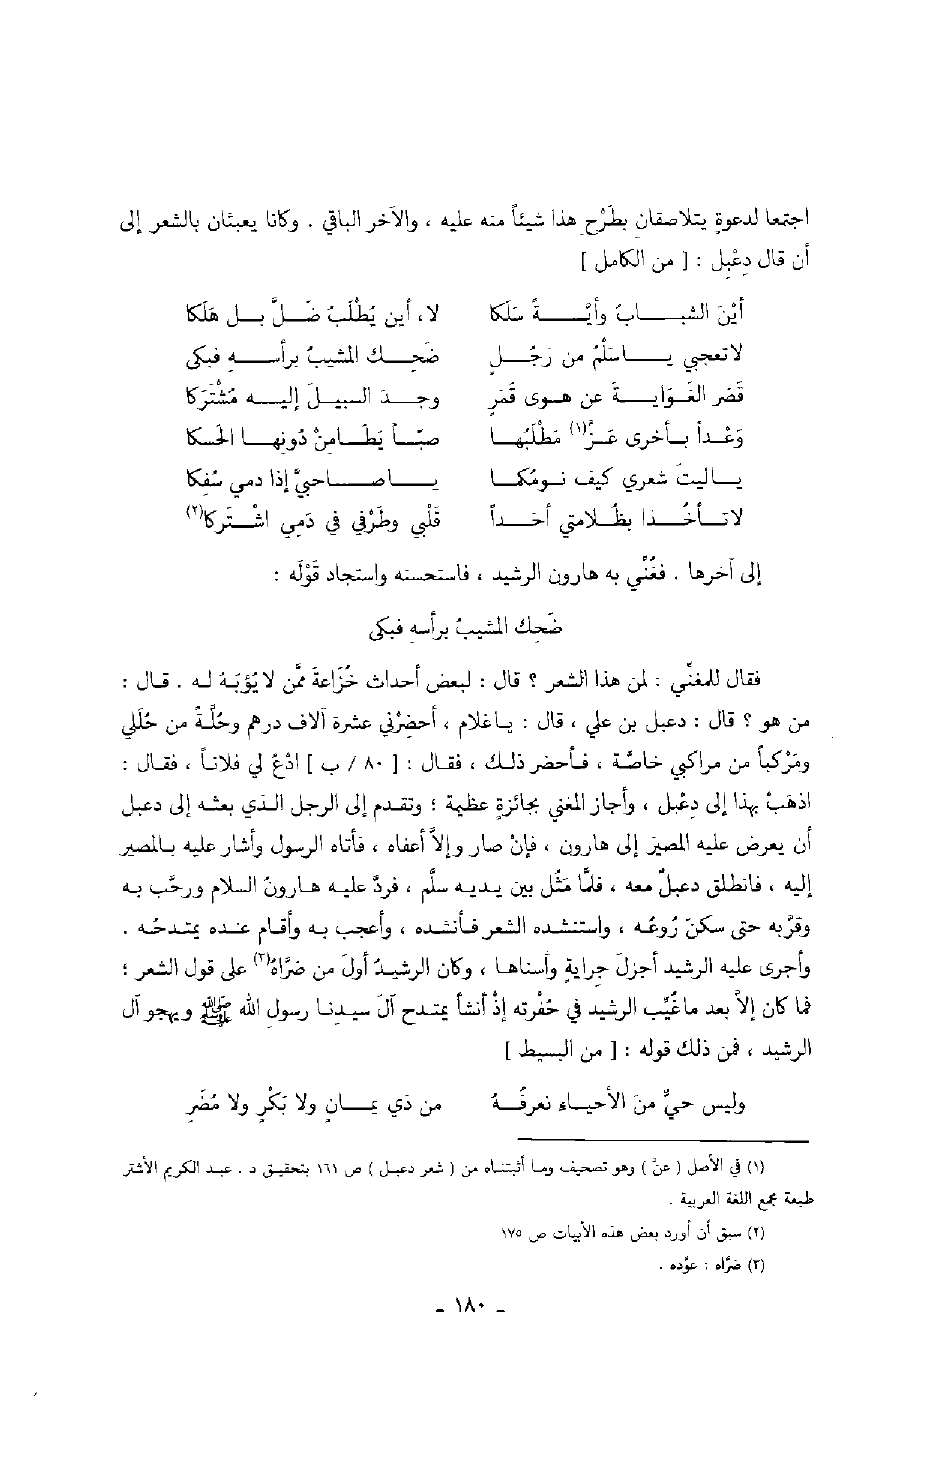 اجتمعا لدعوةٍ يتلاصقان بطَرْح هذا شيئاً منه عليه ، والآخر الباقي . وكانا يعبثان بالشعر إلى
أن قال دِعْبِل : [ من الكامل ]
أيْنَ الشبـابُ وأيَّـةً سَلكا لا، أين يُطْلَبُ ضَلَّ بل هَلَكا
لا تعجبي يـا سَلْمُ من رَجُلٍ ضَحِـك المشيبُ برأسـهِ فبكى
قَصَر الغَـوَايـةَ عن هـوى قَمَرٍ وجـدَ السبيـلَ إليـه مُشْتَرَكا
وَغَـداً بـأخرى عَـزَّ(١) مَطْلَبُهـا صبّـاً يُطَـامِنُ دُونهـا الحسكـا
يـاليتَ شعري كيف نـومُكمـا يـاصـاحبيَّ إذا دمي سُفِكا
لاتـأخُـذا بظُلامتي أحـداً قَلْبي وطَرْفي في دَمي اشْتَركا(٢)
إلى آخرها . فغُنِّي به هارون الرشيد ، فاستحسنه واستجاد قَوْلَه :
ضَحِك المشيبُ برأسهِ فبكى
فقال للمغنّي : لمن هذا الشعر ؟ قال : لبعض أحداث خُزَاعةَ ممَّن لا يُؤبَـهُ لـه . قـال :
من هو ؟ قال : دعبل بن علي ، قال : ياغلام ، أحضِرْني عشرة آلاف درهم وحُلَّـةً من حُلَلي
ومَرْكباً من مراكبي خاصَّة ، فأحضر ذلك ، فقال : [ ٨٠ / ب ] ادْعُ لي فلاناً ، فقال :
اذهَبْ بهذا إلى دِعْبل ، وأجاز المغني بجائزةٍ عظيمة ؛ وتقدم إلى الرجل الذي بعثه إلى دعبل
أن يعرض عليه المصيرَ إلى هارون ، فإنْ صار وإلاَّ أعفاه ، فأتاه الرسول وأشار عليه بالمصير
إليه ، فانطلق دعبلٌ معه ، فلمَّا مَثُل بين يديه سلَّم ، فردَّ عليه هارونُ السلام ورحَّب به
وقرَّبه حتى سكنَ رُوعُه ، واستنشده الشعر فأنشده ، وأعجب به وأقام عنده يمتدحُه .
وأجرى عليه الرشيد أجزلَ جِرايةٍ وأسناها ، وكان الرشيدُ أولَ من ضرَّاه(٣) على قول الشعر ؛
فما كان إلاَّ بعد ماغُيِّب الرشيد في حُفْرته إذْ أنشأ يمتدح آلَ سيدنا رسول الله ﷺ ويهجو آل
الرشيد ، فمن ذلك قوله : [ من البسيط ]
وليس حيٌّ منَ الأحيـاء نعرفُـهُ من ذي يمـانٍ ولا بَكْرٍ ولا مُضَرِ
(١) في الأصل ( عنَّ ) وهو تصحيف وما أثبتناه من ( شعر دعبل ) ص ١٦١ بتحقيق د . عبد الكريم الأشتر
طبعة مجمع اللغة العربية .
(٢) سبق أن أورد بعض هذه الأبيات ص ١٧٥
(٣) ضرَّاه : عوَّده .
- ١٨٠ -